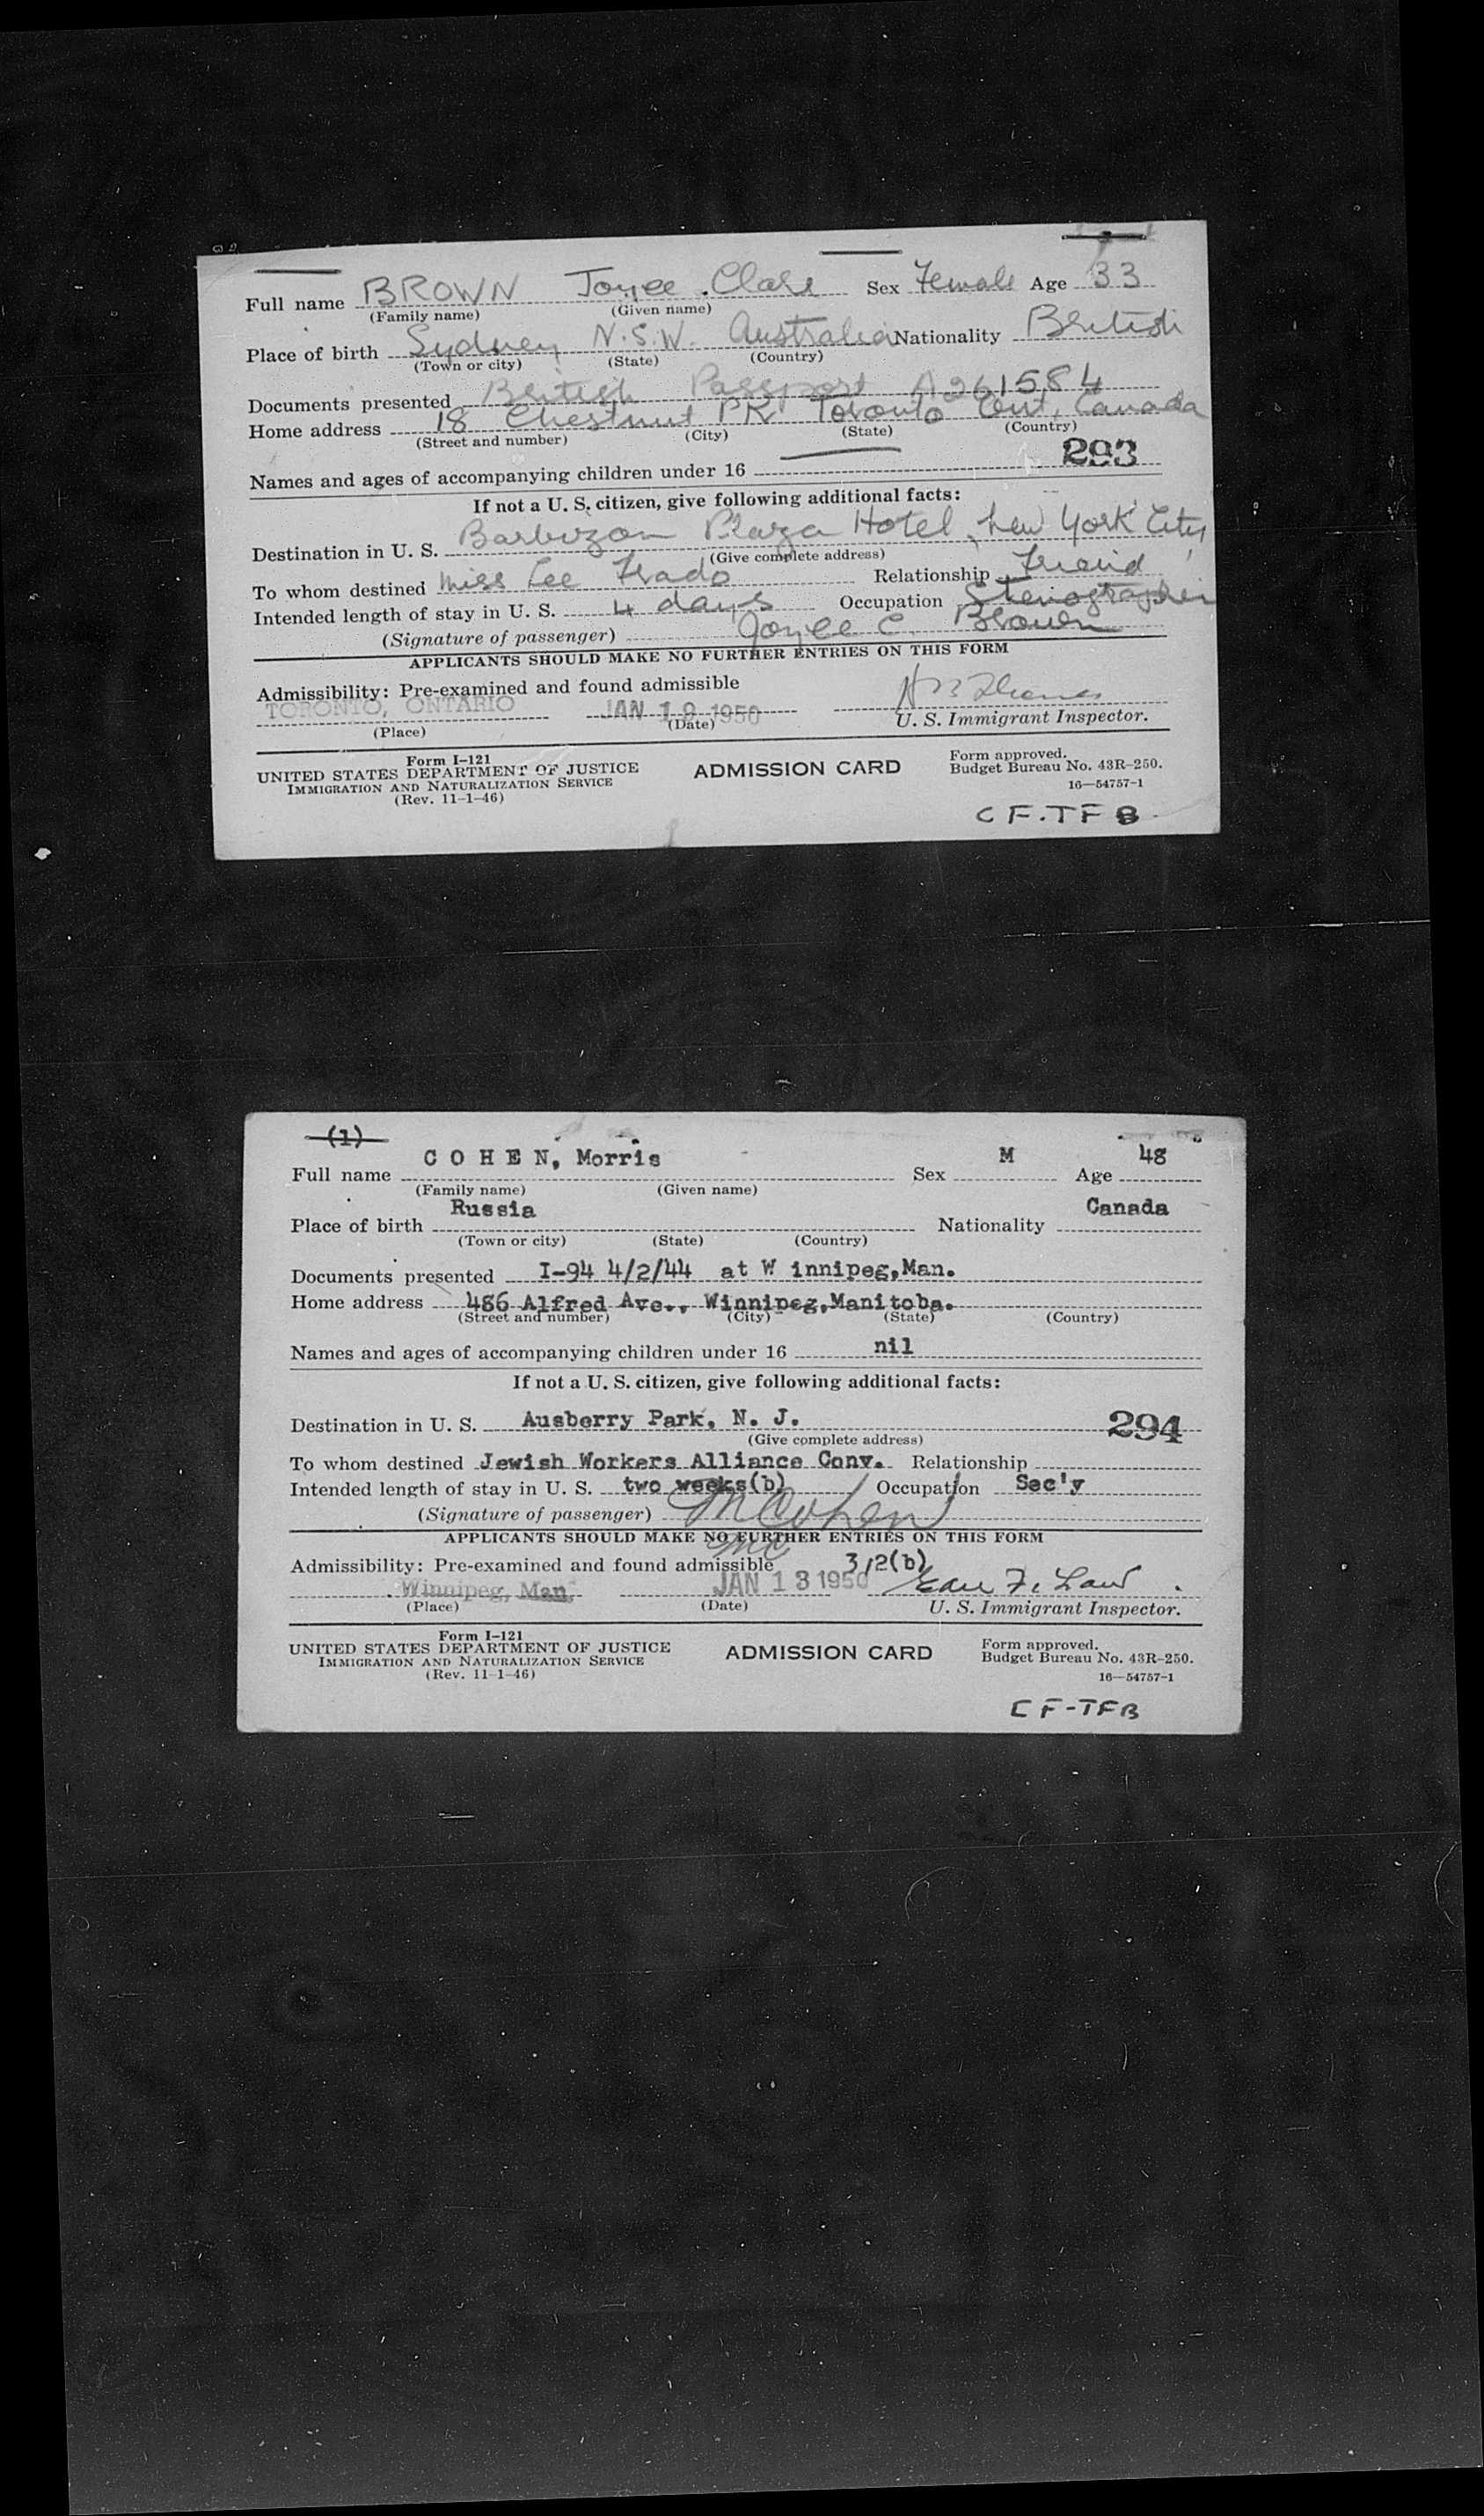 Full name BROWN Joyce Clare Sex Female Age 33
(Family name) (Given name)
Place of birth Sydney N.S.W. Australia Nationality British
(Town or city) (State) (Country)
Documents presented British Passport A261584
Home address 18 Chestnut PK Toronto Ont, Canada
(Street and number) (City) (State) (Country)
Names and ages of accompanying children under 16 293
If not a U. S. citizen, give following additional facts:
Destination in U. S. Barbizon Plaza Hotel, New York City
(Give complete address)
To whom destined Miss Lee Relationship Friend
Intended length of stay in U. S. 4 days Occupation Stenographer
(Signature of passenger) Joyce C. Brown
APPLICANTS SHOULD MAKE NO FURTHER ENTRIES ON THIS FORM
Admissibility: Pre-examined and found admissible
TORONTO, ONTARIO JAN 1 1950
(Place) (Date) U. S. Immigrant Inspector.
Form I-121
UNITED STATES DEPARTMENT OF JUSTICE
IMMIGRATION AND NATURALIZATION SERVICE
(Rev. 11-1-46)
ADMISSION CARD
Form approved.
Budget Bureau No. 43R-250.
16—54757-1
CF.TFB
(1)
Full name C O H E N, Morris Sex M Age 48
(Family name) (Given name)
Place of birth Russia Nationality Canada
(Town or city) (State) (Country)
Documents presented I-94 4/2/44 at W innipeg,Man.
Home address 486 Alfred Ave., Winnipeg,Manitoba.
(Street and number) (City) (State) (Country)
Names and ages of accompanying children under 16 nil
If not a U. S. citizen, give following additional facts:
Destination in U. S. Ausberry Park, N. J. 294
(Give complete address)
To whom destined Jewish Workers Alliance Conv. Relationship
Intended length of stay in U. S. two weeks(b) Occupation Sec'y
(Signature of passenger) M Cohen
APPLICANTS SHOULD MAKE NO FURTHER ENTRIES ON THIS FORM
MC
Admissibility: Pre-examined and found admissible 3,2(b)
Winnipeg, Man. JAN 13 1950
(Place) (Date) U. S. Immigrant Inspector.
Form I-121
UNITED STATES DEPARTMENT OF JUSTICE
IMMIGRATION AND NATURALIZATION SERVICE
(Rev. 11-1-46)
ADMISSION CARD
Form approved.
Budget Bureau No. 43R-250.
16—54757-1
CF-TFB